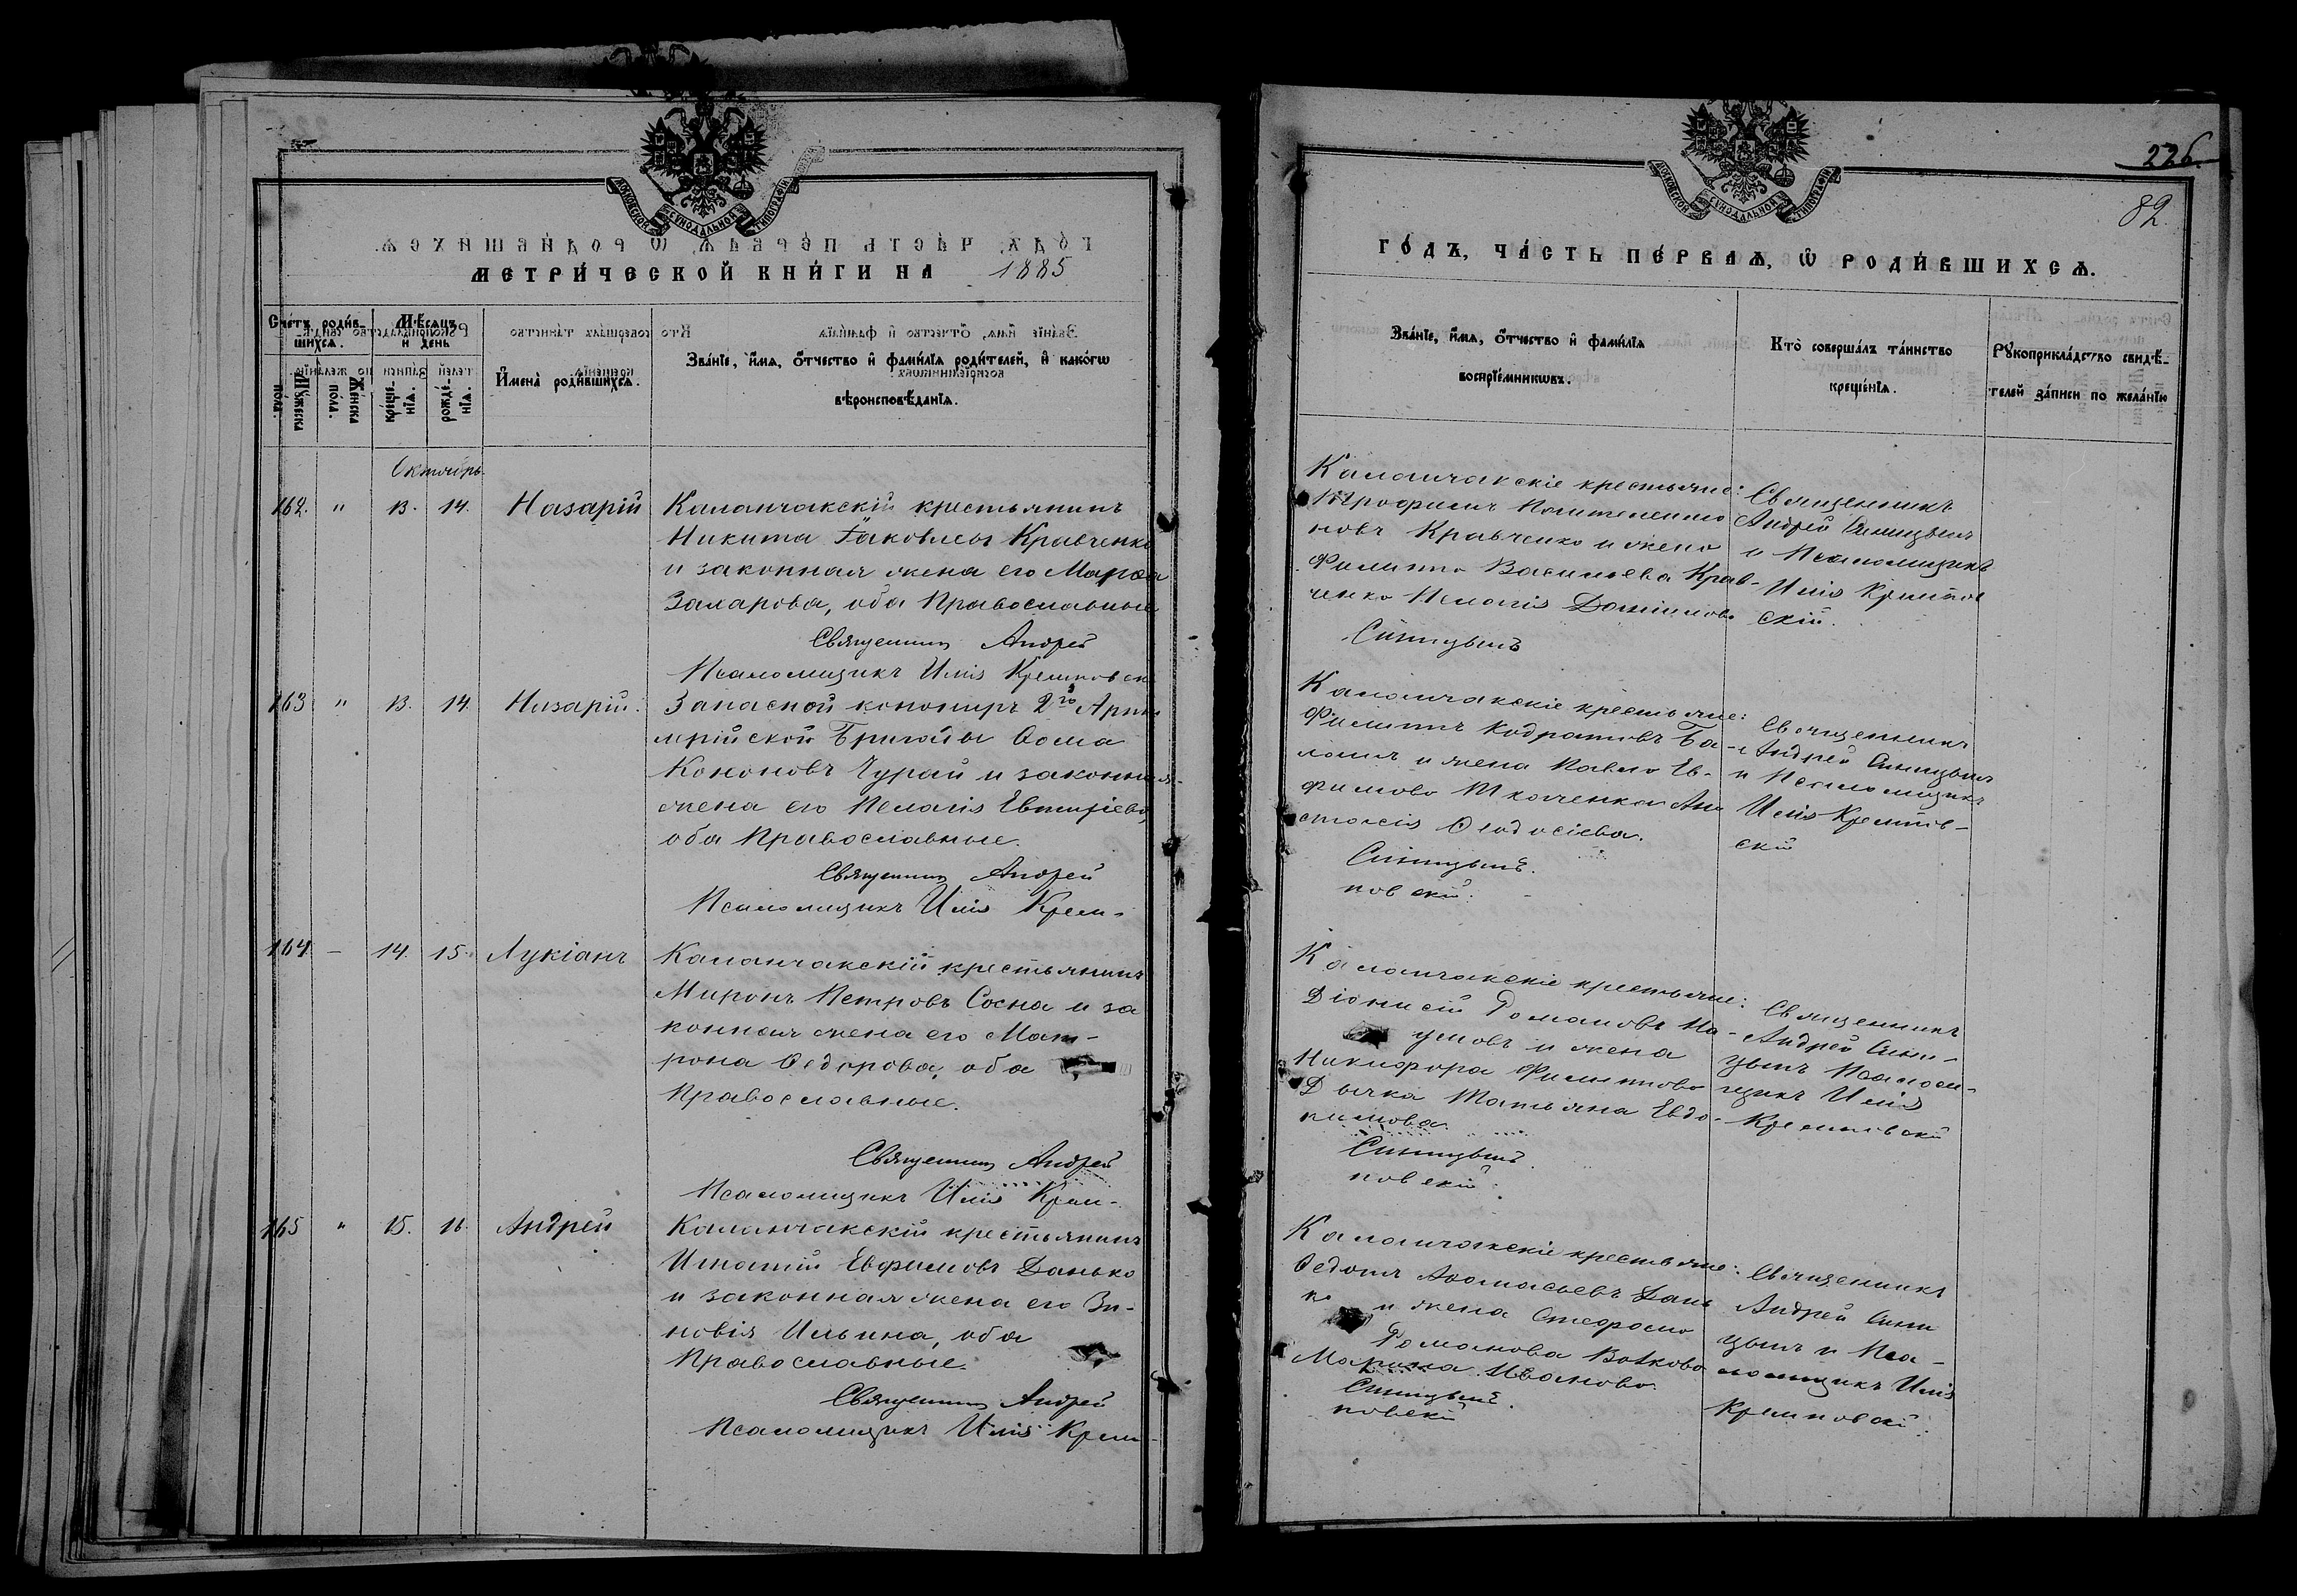 МОСКОВСКОЙ СѴНОДАЛЬНОЙ ТИПОГРАФІИ
МЕТРИ́ЧЕСКОЙ КНИ́ГИ НА 1885
Сче́тъ роди́в-
шихсѧ.
Мѣ́сѧцъ
и день
Мꙋ́жеска
по́ла.
Же́нска
по́ла.
креще́-
нїѧ.
рожде́-
нїѧ.
И҆мена̀ роди́вшихсѧ.
Зва́нїе, и҆́мѧ, ѻ҆́тчество и҆ фамі́лїѧ роди́телей, и҆ како́гѡ
вѣроисповѣ́данїѧ.
Октябрь
162. " 13. 14. Назарій
Каланчакскій крестьянинъ
Никита Іаковлевъ Кравченко
и законная жена его Марѳа
Захарова, оба Православные
Священникъ Андрей
Псаломщикъ Илія Кремповск
163 " 13. 14. Назарій.
Запасной канониръ 2й Арти
лерійской Бригады Ѳома
Кононовъ Чурай и законная
жена его Пелагія Евтихіева,
оба Православные.
Священникъ Андрей
Псаломщикъ Илія Крем-
164 – 14. 15. Лукіанъ
Каланчакскій крестьянинъ
Миронъ Петровъ Сосна и за
конная жена его Мат-
рона Ѳедорова, оба
Православные.
Священникъ Андрей
Псаломщикъ Илія Крем-
165 " 15. 16. Андрей
Каланчакскій крестьянинъ
Игнатій Евфимовъ Данько
и законная жена его Зи-
новія Ильина, оба
Православные.
Священникъ Андрей
Псаломщикъ Илія Крем-
МОСКОВСКОЙ СѴНОДАЛЬНОЙ ТИПОГРАФІИ
226.
82.
ГО́ДЪ, ЧА́СТЬ ПЕ́РВАѦ, Ѡ҆ РОДИ́ВШИХСѦ.
Зва́нїе, и҆́мѧ, ѻ҆́тчество и҆ фамі́лїѧ
воспрїе́мникѡвъ.
Кто̀ соверша́лъ та́инство
креще́нїѧ.
Рꙋкоприкла́дство свидѣ́-
телей за́писи по жела́нїю
Каланчакскіе крестьяне:
Трофимъ Пантелеимо
новъ Кравченко и жена
Филиппа Васильева Крав-
ченко Пелагія Даніилова
Синицынъ
Священникъ
Андрей Синицынъ
и Псаломщикъ
Илія Кремпов
скій.
Каланчакскіе крестьяне:
Филиппъ Кодратовъ Ба-
и жена Павла Ев-
фимова Ткаченка Ана
стасія Ѳеодосіева.
Синицынъ.
повскій.
Священникъ
Андрей Синицынъ
и Псаломщикъ
Илія Кремпов-
скій
Каланчакскіе крестьяне:
Діонисій Романовъ На-
умовъ и жена
Никифора Филиппова
Дычка Татьяна Евдо-
кимова.
Синицынъ.
повскій.
Священникъ
Андрей Сини-
цынъ Псалом-
щикъ Илія
Кремповскій
Каланчакскіе крестьяне:
Ѳедотъ Аѳанасьевъ Дань
ко и жена Стефана
Романова Волкова
Марина Иванова.
Синицынъ.
повскій
Священникъ
Андрей Сини
цынъ и Пса-
ломщикъ Илія
Кремповскі.